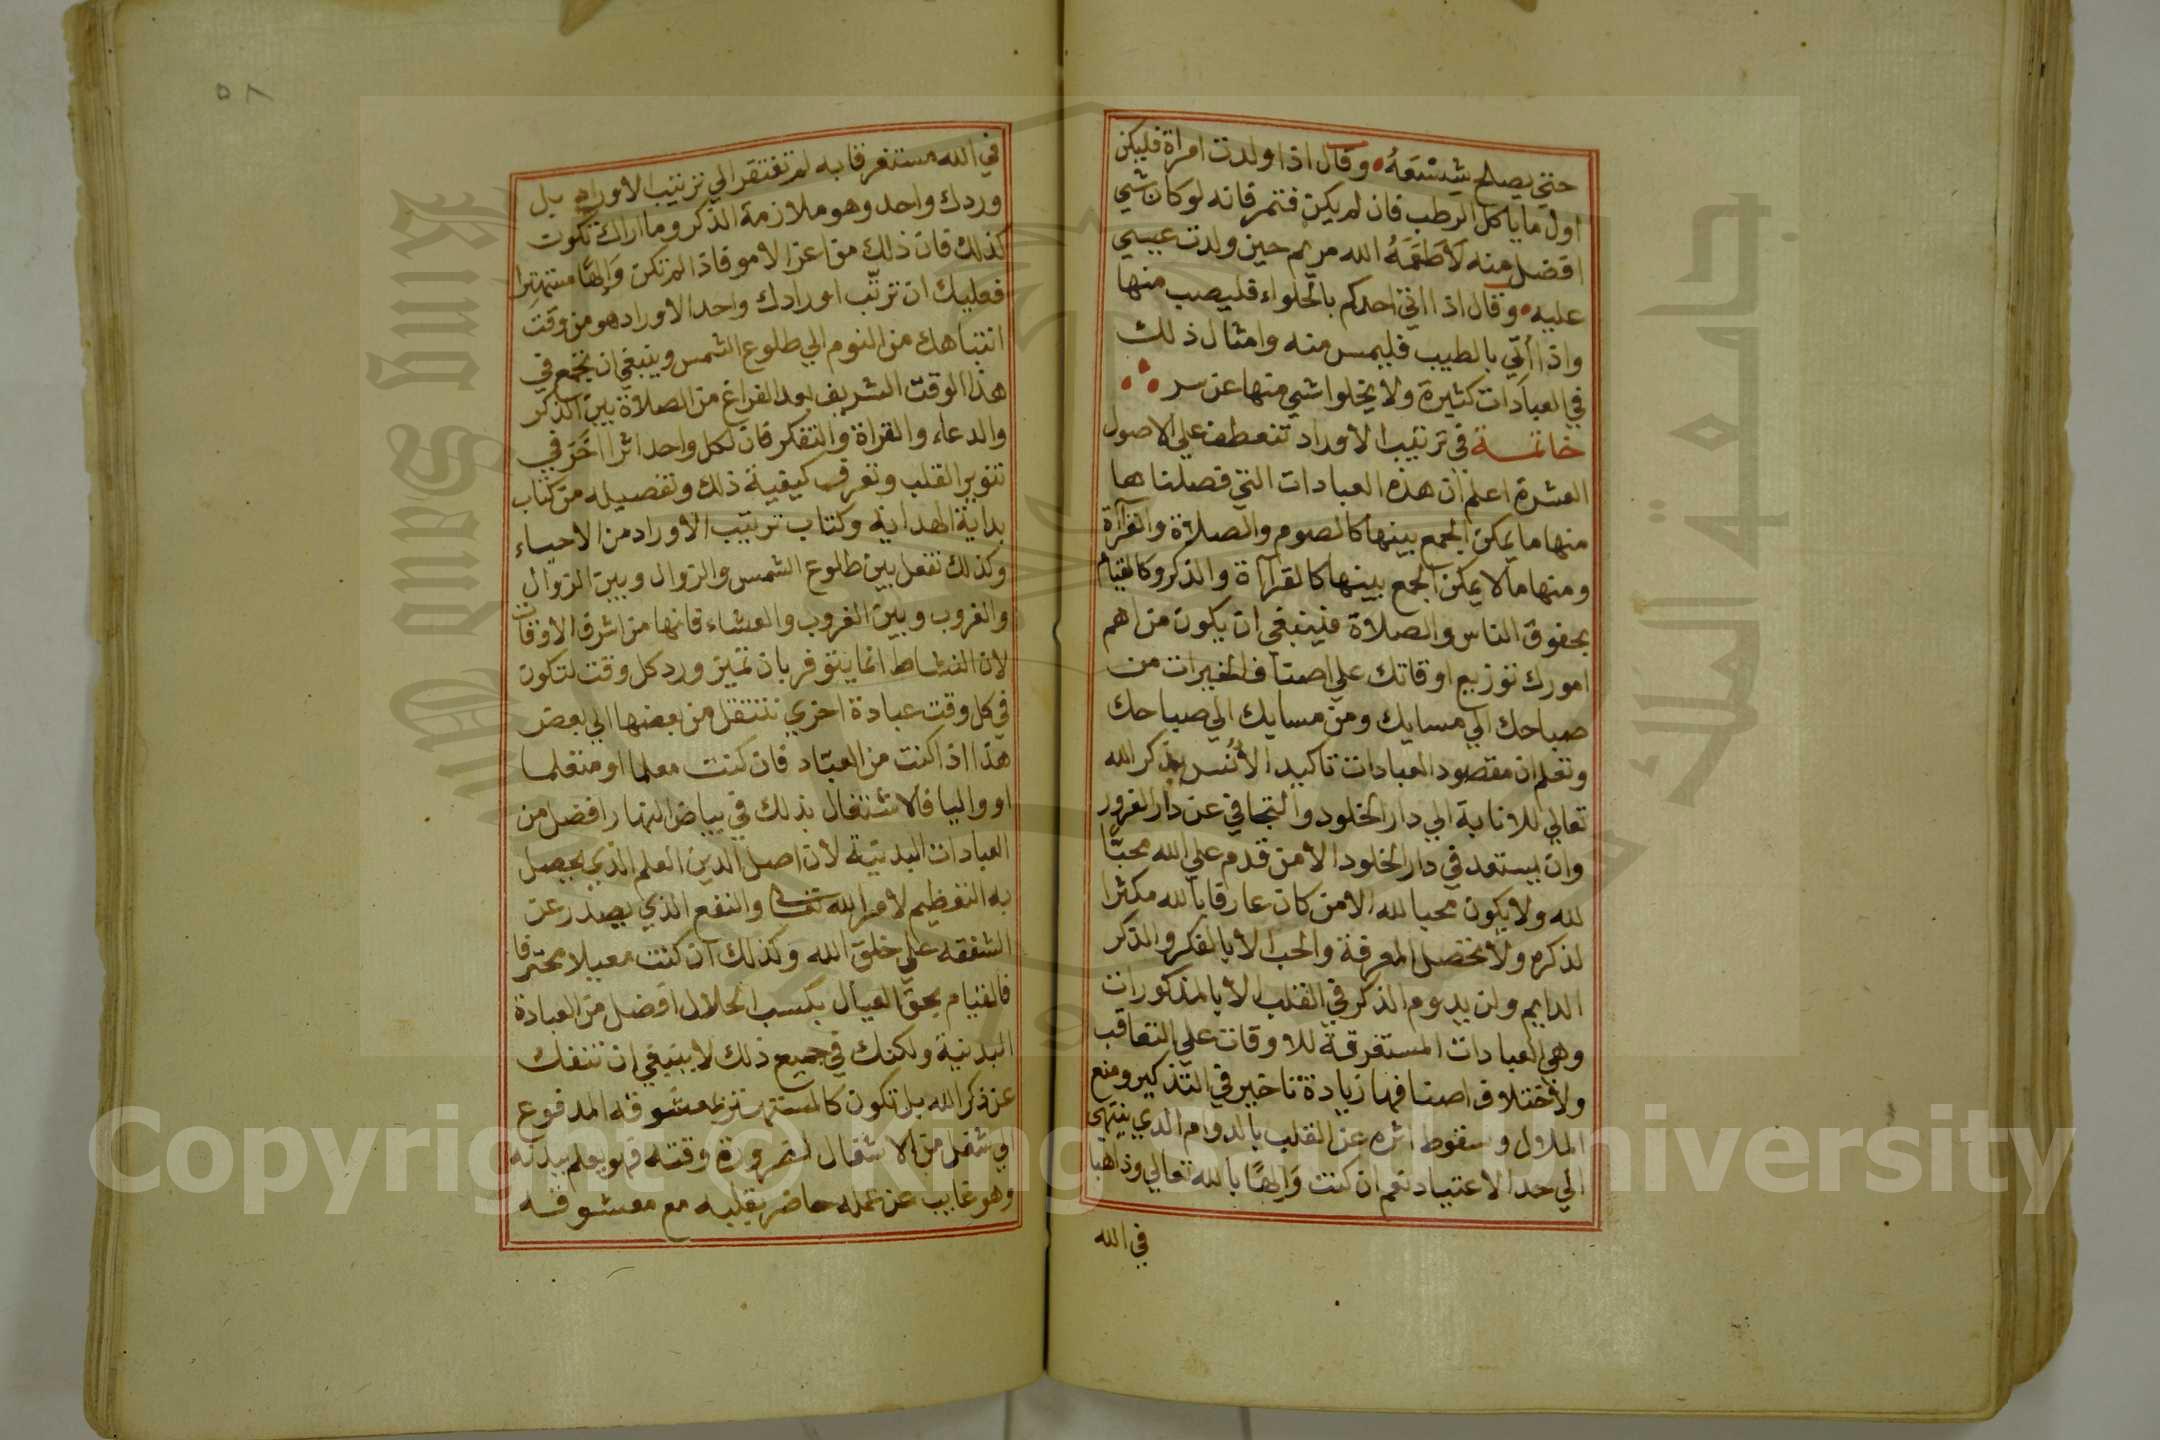 حتي يصلح شِسْعَهُ وقال اذا ولدت امراة فليكن
اول ما ياكل الرطب فان لم يكن فتمر فانه لو كان شي
افضل منه لَأَطْعَمَهُ الله مريم حين ولدت عيسي
عليه وقال اذا اتي احدكم بالحلواء فليصب منها
واذا أتي بالطيب فليمس منه وامثال ذلك
في العبادات كثيرة ولا يخلوا شي منها عن سر
خاتمة في ترتيب الاوراد تنعطف علي الاصول
العشرة اعلم ان هذه العبادات التي فصلناها
منها ما يمكن الجمع بينها كالصوم والصلاة والقرآة
ومنها ما لا يمكن الجمع بينها كالقرآاة والذكر وكالقيام
بحقوق الناس والصلاة فينبغي ان يكون من اهم
امورك توزيع اوقاتك علي اصناف الخيرات من
صباحك الي مسايك ومن مسايك الي صباحك
وتعلم ان مقصود العبادات تاكيد الأُنس بذكر الله
تعالي للانابة الي دار الخلود والتجافي عن دار الغرور
وان يسعد في دار الخلود الا من قدم علي الله محبّا
لله ولا يكون محبا لله الا من كان عارفا بالله مكثرا
لذكره ولا تحصل المعرفة والحب الا بالفكر والذكر
الدايم ولن يدوم الذكر في القلب الا بالمذكورات
وهي العبادات المستغرقة للاوقات علي التعاقب
ولاختلاف اصنافها زيادة تاخير في التذكير ومنع
الملال وسقوط اثره عن القلب بالدوام الذي ينتهي
الي حد الاعتياد نعم ان كنت وَالِهًا بالله تعالي وذاهبا
في الله
٥٨
في الله مستغرقا به لم تفتقر الي ترتيب الاوراد بل
وردك واحد وهو ملازمة الذكر وما اراك تكون
كذلك فان ذلك من اعز الامو فاذا لم تكن وَالِهًا مستهترا
فعليك ان ترتّب اورادك واحد الاوراد هو من وقت
انتباهك من النوم الي طلوع الشمس وينبغي ان تجمع في
هذا الوقت الشريف بعد الفراغ من الصلاة بين الذكر
والدعاء والقراة والتفكر فان لكل واحد اثرا اخَرَ في
تنوير القلب وتعرف كيفية ذلك وتفصيله من كتاب
بداية الهداية وكتاب ترتيب الاوراد من الاحياء
وكذلك تفعل بين طلوع الشمس والزوال وبين الزوال
والغروب وبين الغروب والعشاء فانها من اشرف الاوقات
لان النشاط انما يتوفر بان تميز ورد كل وقت لتكون
في كل وقت عبادة اخري تنتقل من بعضها الي بعض
هذا اذا كنت من العبّاد فان كنت معلما او متعلما
او واليا فالاشتغال بذلك في بياض النهار افضل من
العبادات البدنية لان اصل الدين العلم الذي يحصل
به التعظيم لامر الله تعالى والنفع الذي يصدر عن
الشفقه علي خلق الله وكذلك ان كنت معيلا محترفا
فالقيام بحق العيال بكسب الحلال افضل من العبادة
البدنية ولكنك في جميع ذلك لا ينبغي ان تنفك
عن ذكر الله بل تكون كالمستهتر بمعشوقه المدفوع
الي شغل من الاشغال لضرورة وقته فهو يعلم ببدنه
وهو غايب عن عمله حاضر بقلبه مع معشوقه
King Saud University
جامعة الملك
Copyright © King Saud University